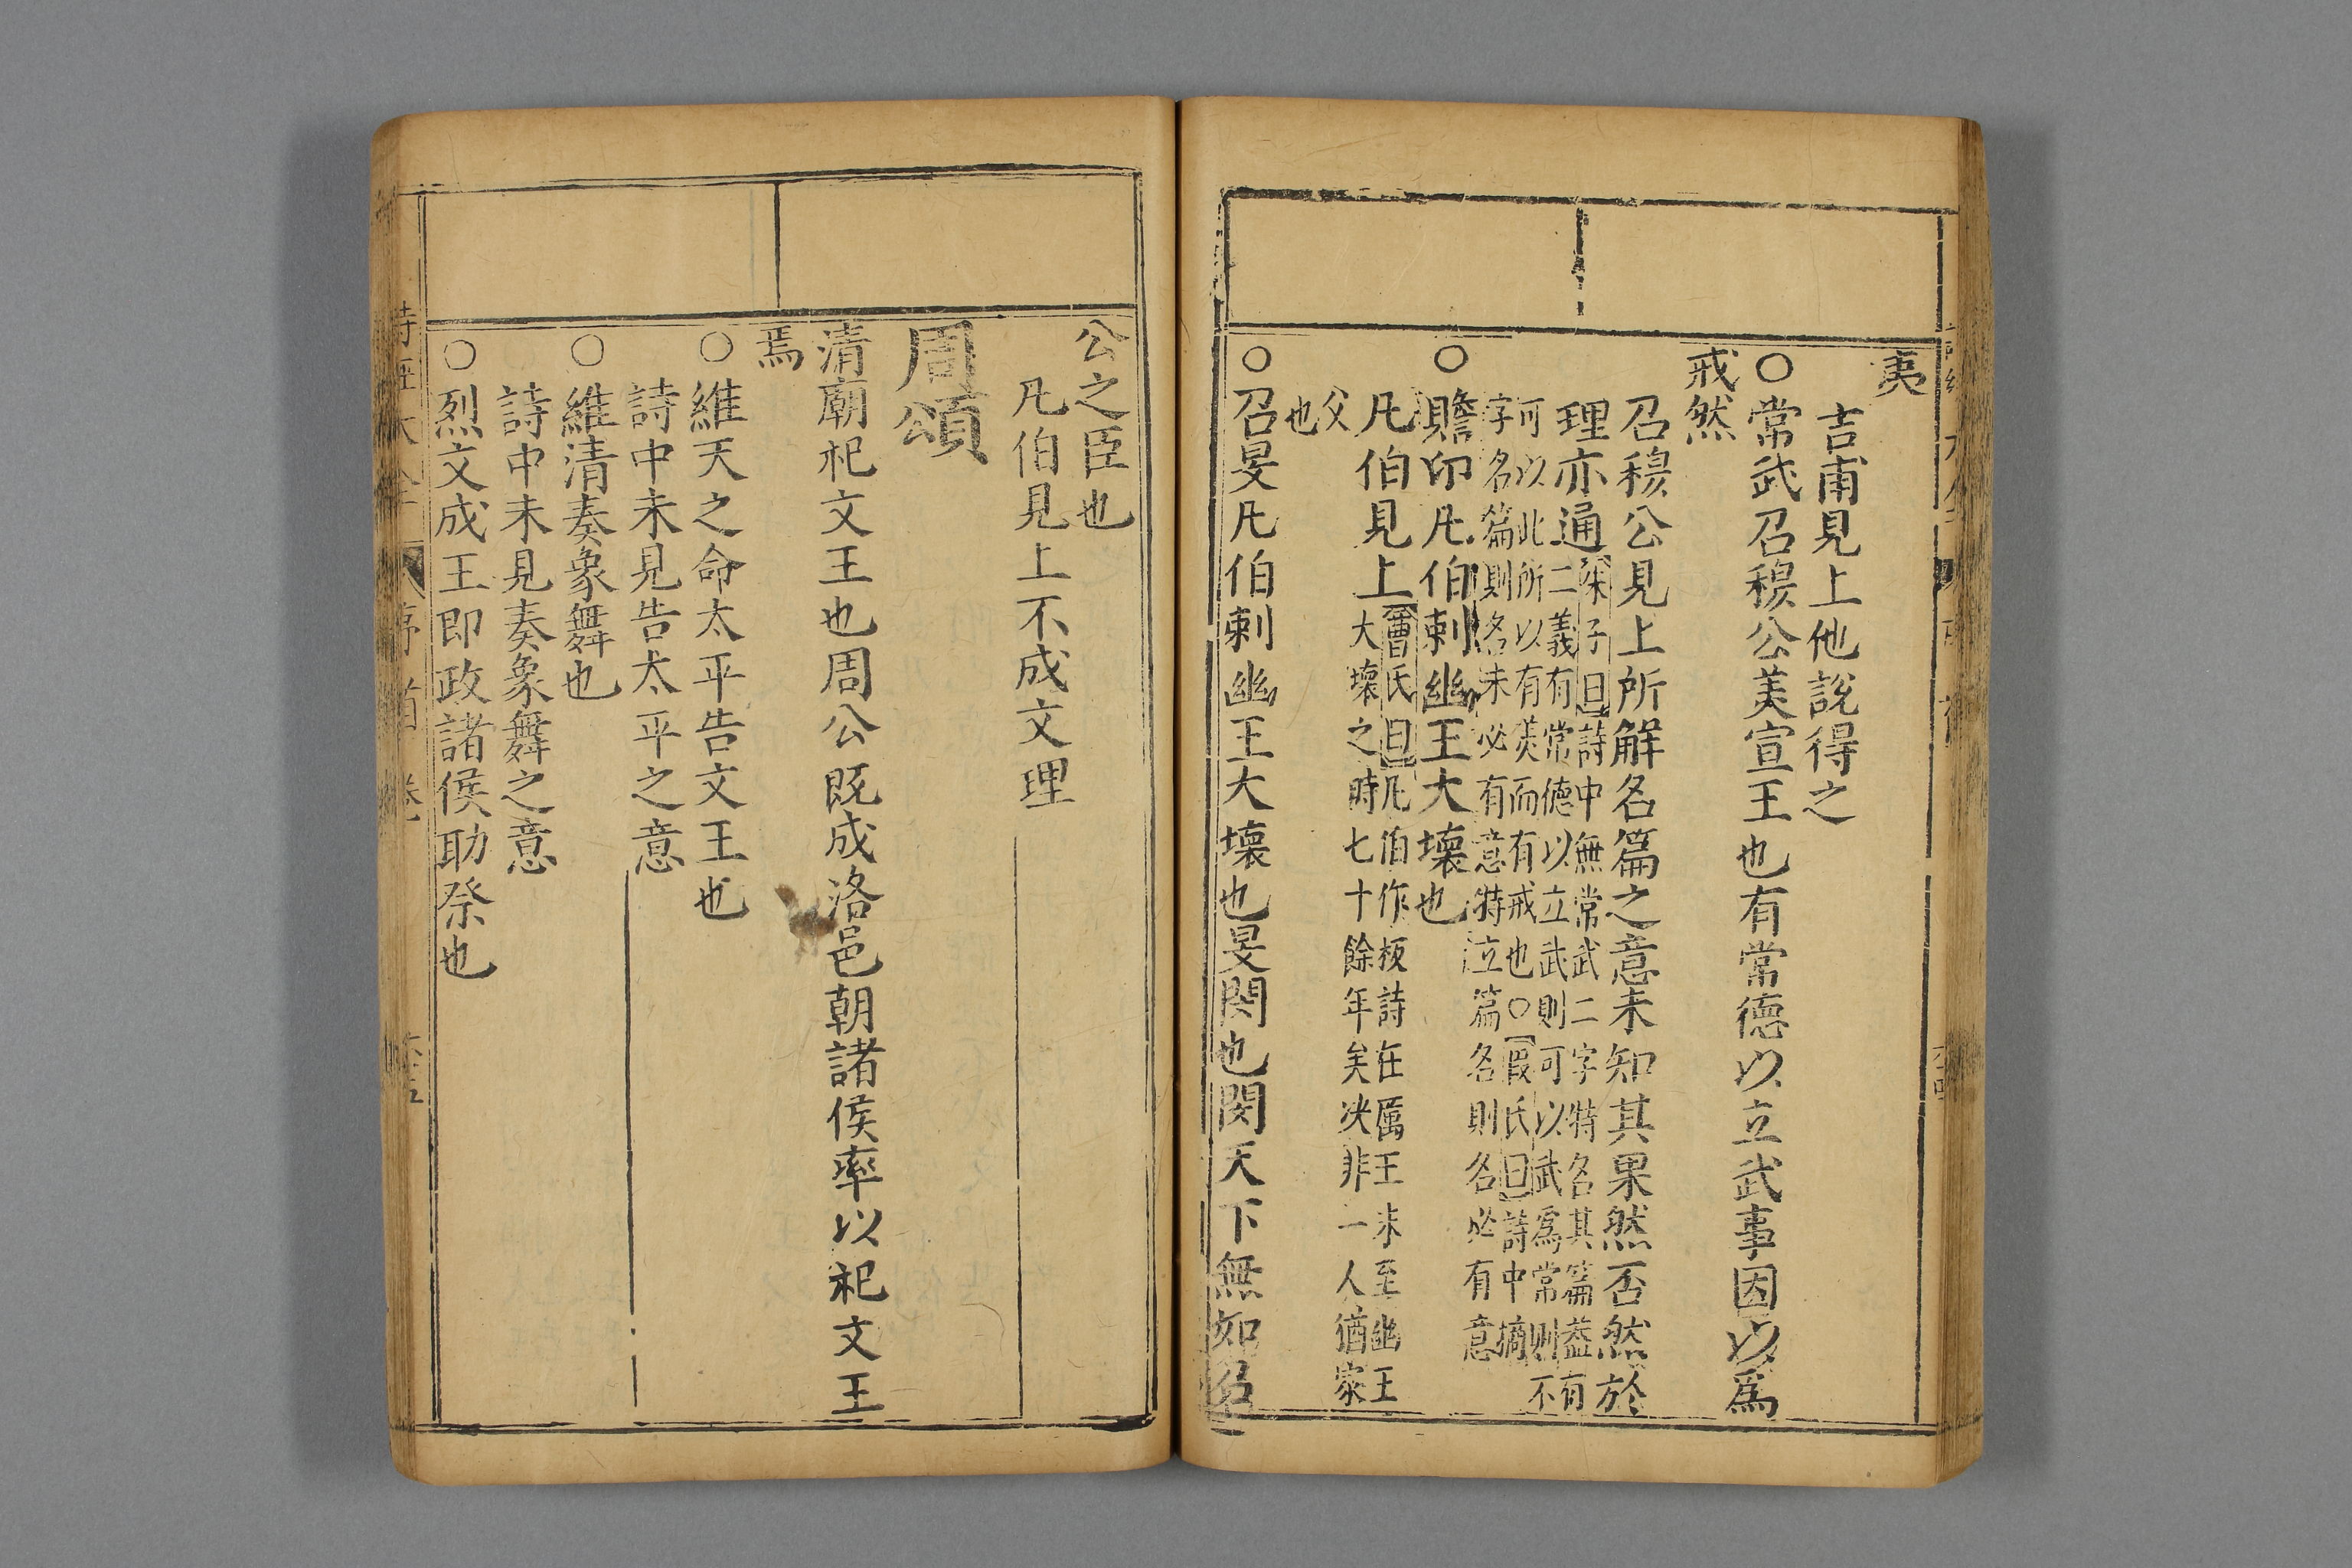 夷
吉甫見上他說得之
○常武召穆公美宣王也有常德以立武事因以爲
戒然
召穆公見上所解名篇之意未知其果然否然於
理亦通
朱子曰詩中無常武二字特名其篇蓋有
二義有常德以立武則可以武爲常則不
可以此所以有美而有戒也○叚氏曰詩中摘
字名篇則名未必有意特立篇名則名必有意
○瞻卬凡伯刺幽王大壞也
凡伯見上
曹氏曰凡伯作板詩在厲王末至幽王
大壞之時七十餘年矣决非一人猶家
父
也
○召旻凡伯刺幽王大壞也旻閔也閔天下無如召
公之臣也
凡伯見上不成文理
周頌
清廟祀文王也周公既成洛邑朝諸侯率以祀文王
焉
○維天之命太平告文王也
詩中未見告太平之意
○維清奏象舞也
詩中未見奏象舞之意
○烈文成王即政諸侯助祭也
詩經大全 序 首卷